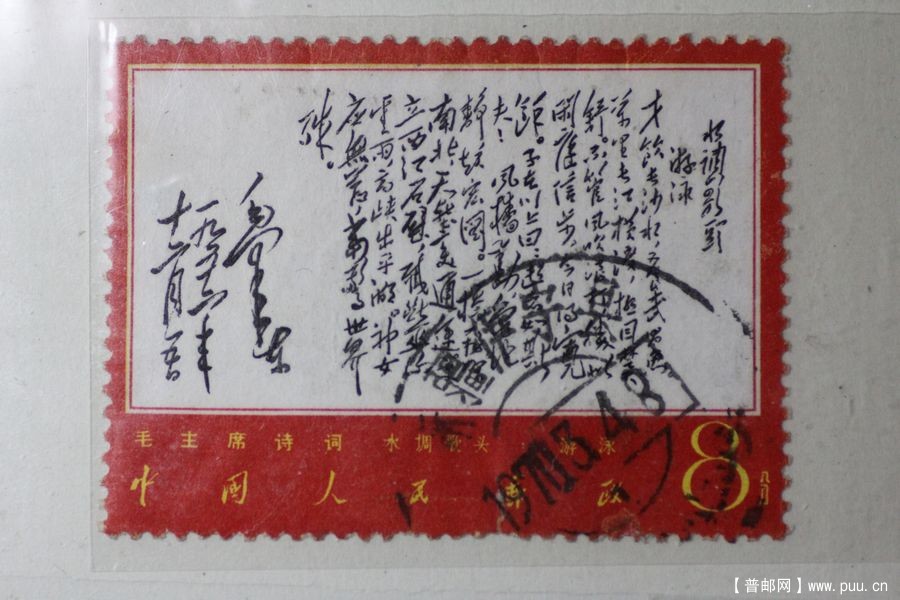 水调歌头
游泳
才饮长沙水,又食武昌鱼。
万里长江横渡,极目楚天
舒。不管风吹浪打,胜似
闲庭信步,今日得宽
馀。子在川上曰:逝者如斯
夫!风樯动,龟蛇
静,起宏圖。一桥飞架
南北,天堑变通途。更
立西江石壁,截断巫山
云雨,高峡出平湖。神女
应無恙,当惊世界
殊。
毛泽东
一九五六年
十二月五日
毛主席诗词 水调歌头 游泳
中国人民邮政
8分
1970.3.4.8
【普邮网】www.puu.cn